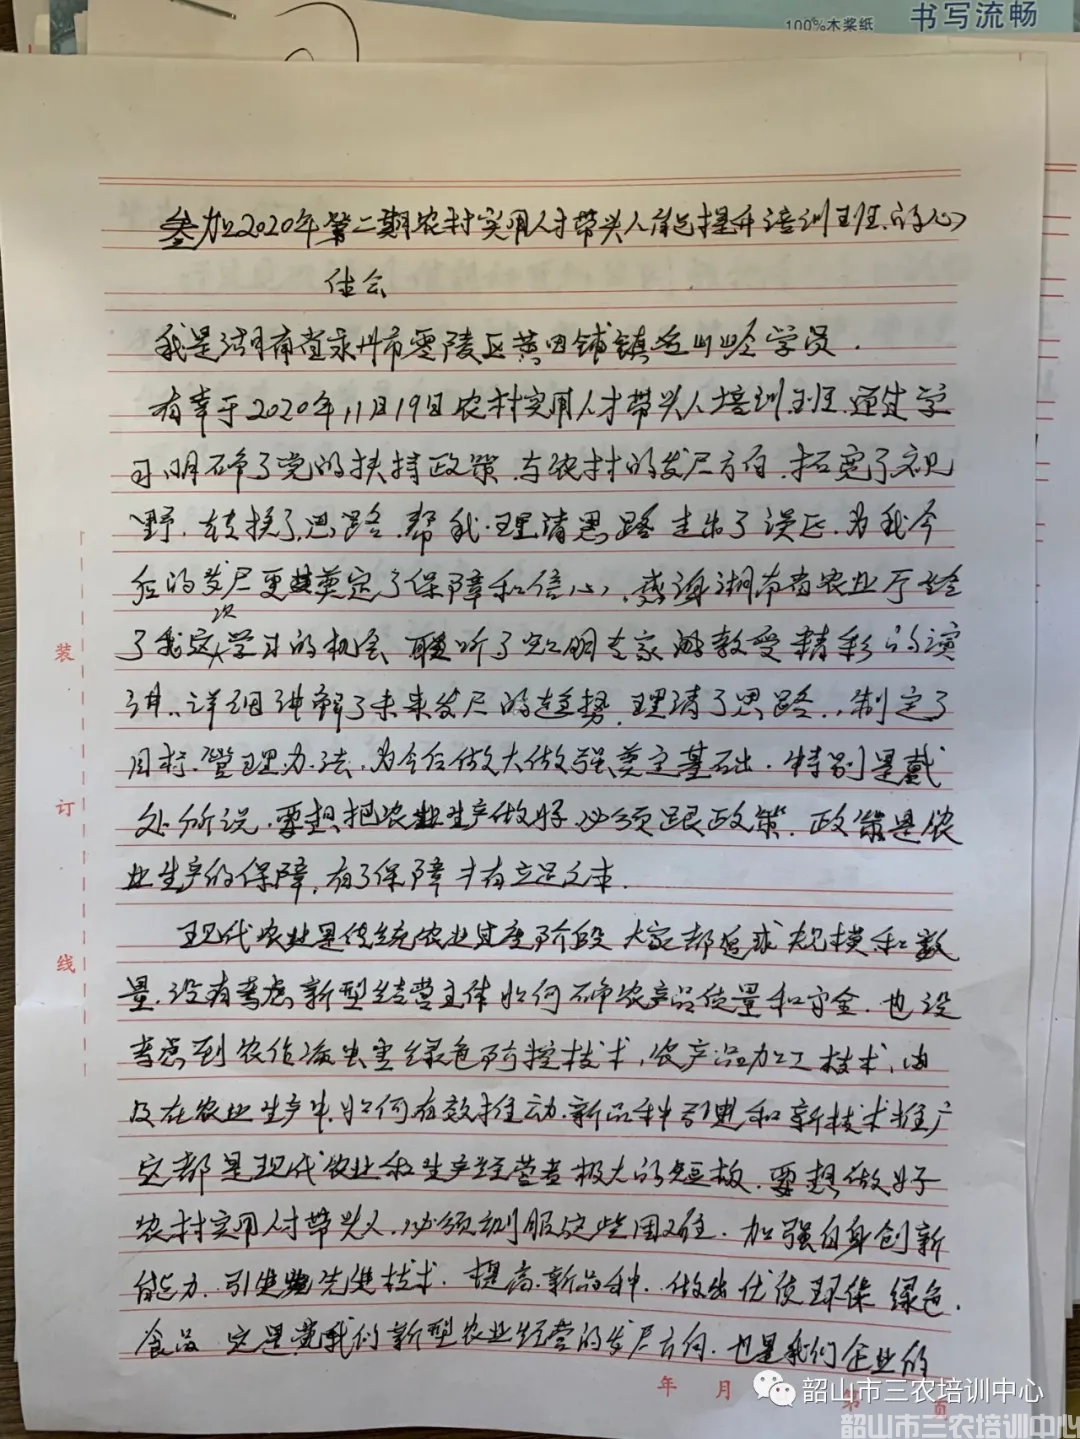 书写流畅
100%木浆纸
参加2020年第二期农村实用人才带头人能力提升培训班的心
体会
我是湖南省永州市零陵区黄田铺镇学员.
有幸于2020年11月19日农村实用人才带头人培训班.通过学
习明确了党的扶持政策.与农村的发展方向.拓宽了视
野.转换了思路.帮我理清思路走出了误区.为我今
后的发展更奠定了保障和信心.感谢湖南省农业厅给
了我这次学习的机会 聆听了专家教受精彩的演
讲.详细讲解了未来发展的趋势.理清了思路.制定了
目标.管理办法.为今后做大做强奠定基础.特别是戴
处所说.要想把农业生产做好.必须跟政策.政策是农
业生产的保障,有了保障才有立足之本.
现代农业是传统农业过度阶段 大家都追求规模和数
量.没有考虑新型经营主体如何确农产品质量和安全.也没
考虑到农作病虫害绿色防控技术,农产品加工技术,以
及在农业生产中如何有效推动.新品种引进和新技术推广
它都是现代农业和生产经营者极大的短板.要想做好
农村实用人才带头人.必须刻服这些困难.加强自身创新
能力.引进先进技术.提高.新品种.做出优质环保 绿色.
食品 它是我们新型农业经营的发展方向.也是我们企业的
装
订
线
年 月
第 页
韶山市三农培训中心
韶山市三农培训中心